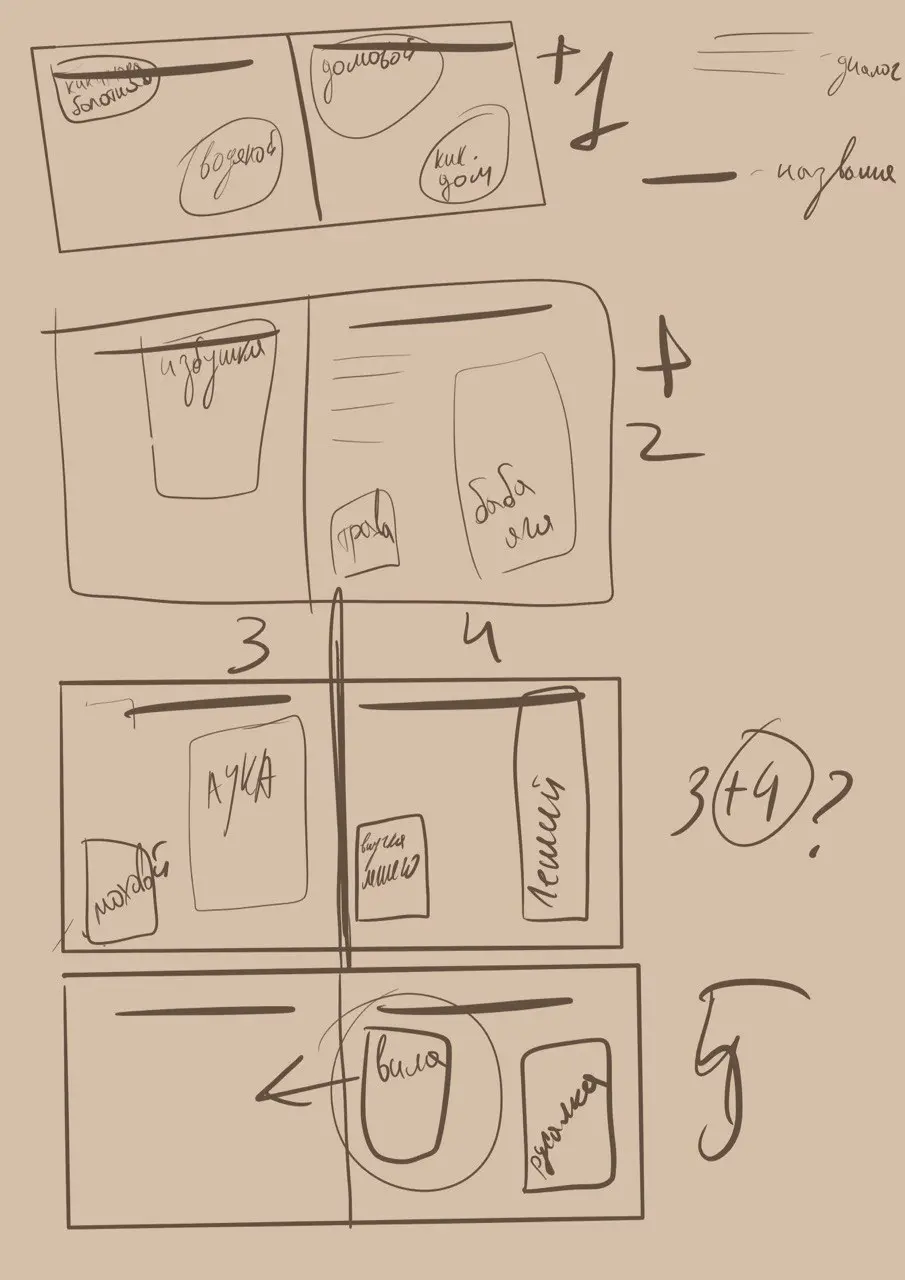 кикимора
болотная
водяной
домовой
кик.
дом
+1
- диалог
- названия
избушка
трава
баба
яга
+
2
3
4
моховой
АУКА
внучка
Леший
3+4?
вила
русалка
5